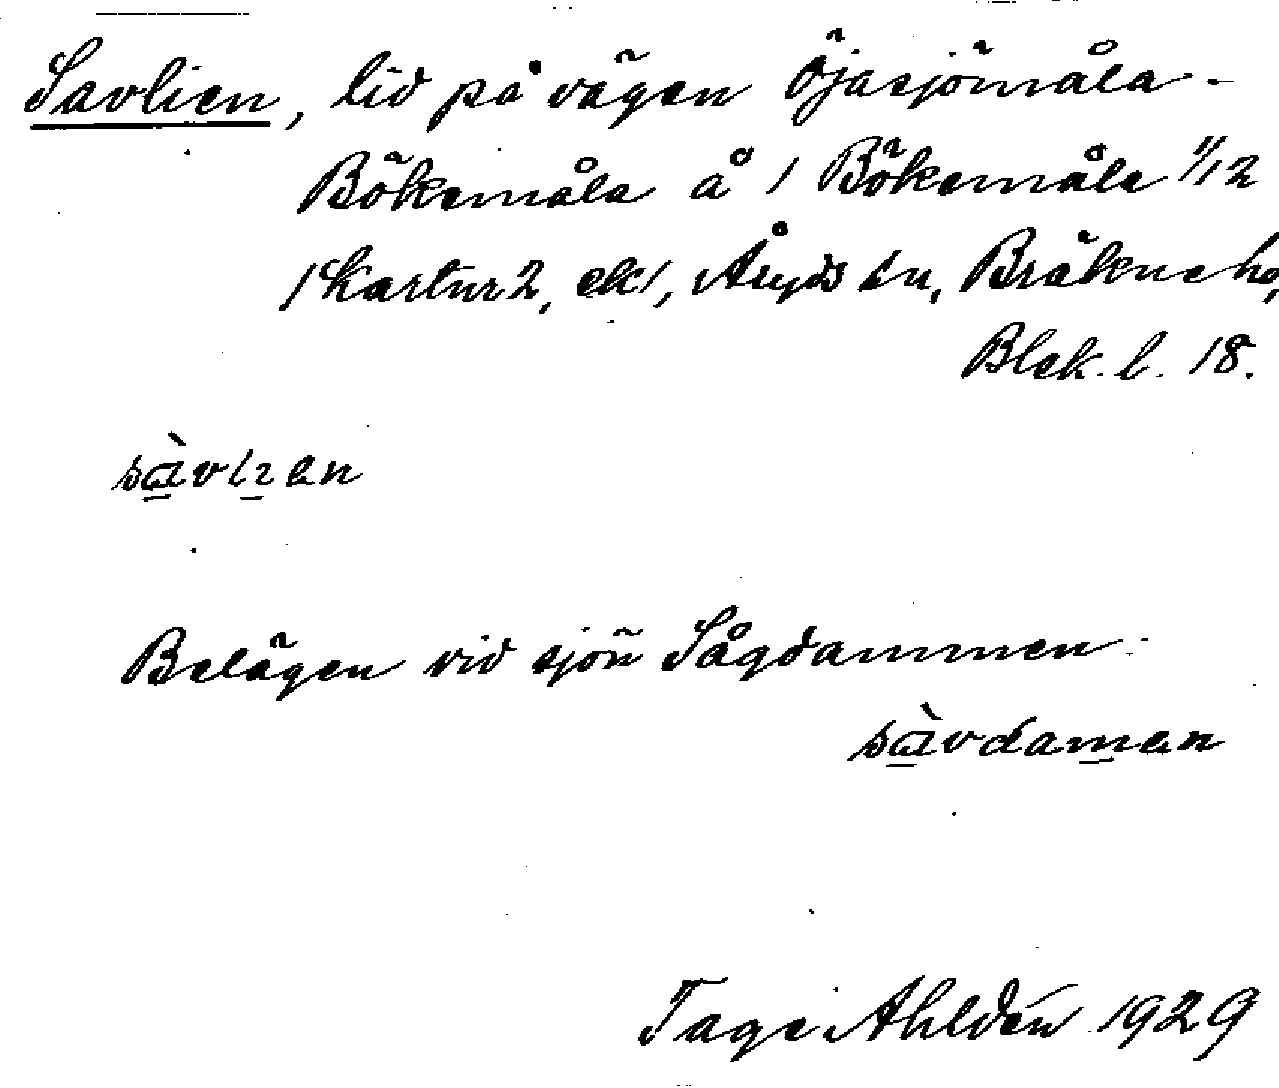 Savlien, lid på vägen Öjasjömåla -
Bökemåla å 1 Bökemåla 1/12
1 Kartur 2, ek 1, Åryds sn, Bräkne hd,
Blek. l. 18.
sàvlien
Belägen vid sjön Sågdammen
sàvdamen
Tage Ahldén 1929